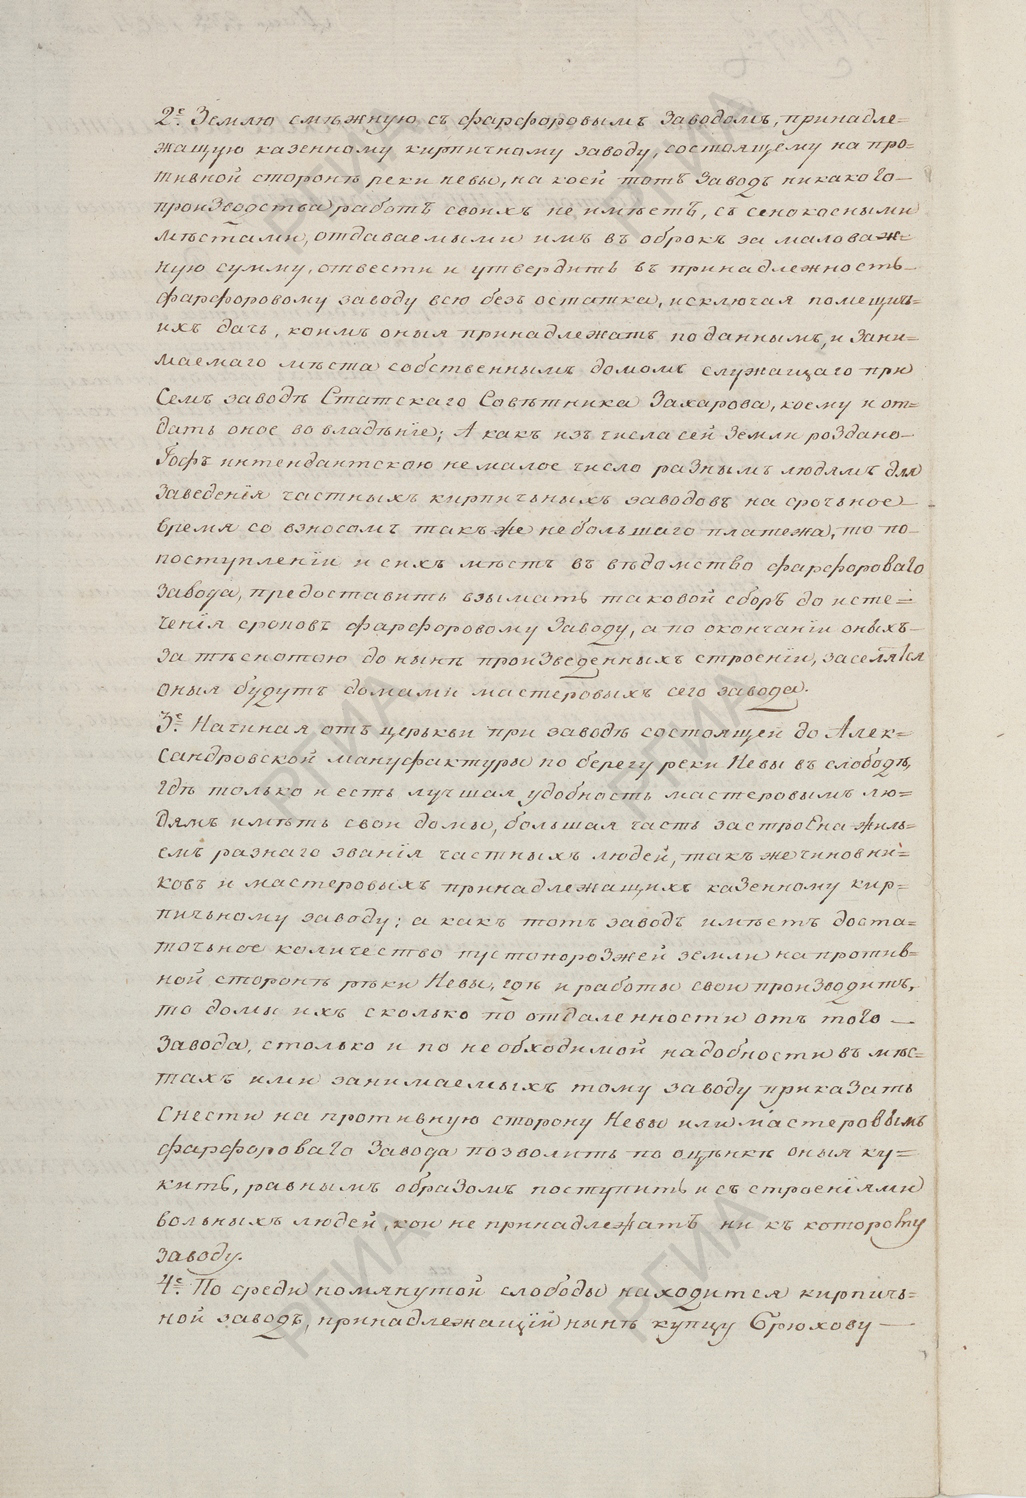 2е. Землю смѣжную съ фарфоровымъ Заводомъ, принадле=
жащую казенному кирпичному заводу, состоящему на про=
тивной сторонѣ реки невы, на коей тотъ Заводъ никакого
производства работъ своихъ не имѣетъ, съ сенокосными
мѣстами, отдаваемыми имъ въ оброкъ за маловаж=
ную сумму, отвести и утвердить въ принадлежность
фарфоровому заводу всю безъ остатка, исключая помещичь=
ихъ дачь, коимъ оныя принадлежатъ по даннымъ, и Зани=
маемаго мѣста собственнымъ домомъ служащаго при
Семъ заводѣ Статскаго Совѣтника Захарова, коему и от=
дать оное во владѣнїе; А какъ изъ числа сей Земли роздано
Гофъ интендантскою немалое число разнымъ людямъ для
Заведенїя частныхъ кирпичьныхъ заводовъ на срочьное
время со взносомъ такъ же небольшаго платежа, то по
поступленїи и сихъ мѣстъ въ вѣдомство фарфороваго
Завода, предоставить взымать таковой сборъ до исте=
ченїя сроковъ фарфоровому Заводу, а по окончанїи оныхъ
за тѣснотою до нынѣ произведенныхъ строенїи, заселятся
оныя будутъ домами мастеровыхъ сего завода.
3е. Начиная отъ церькви при заводѣ состоящей до Алек=
сандровской мануфактуры по берегу реки Невы въ слободѣ,
гдѣ только и есть лучшая удобность мастеровымъ лю=
дямъ имѣть свои домы, большая часть застроена жиль=
емъ разнаго званїя частныхъ людей, такъ же чиновни=
ковъ и мастеровыхъ принадлежащихъ казенному кир=
пичьному заводу; а какъ тотъ заводъ имѣетъ доста=
точьное количество пустопорозжей земли на против=
ной сторонѣ рѣки Невы, гдѣ и работы свои производитъ,
то домы ихъ сколько по отдаленности отъ того
Завода, столько и по необходимой надобности въ мѣс=
тахъ ими занимаемыхъ тому заводу приказать
Снести на противную сторону Невы или мастеровымъ
фарфороваго Завода позволить по оцѣнкѣ оныя ку=
кить, равнымъ образомъ поступить и съ строенїями
вольныхъ людей, кои не принадлежатъ ни къ которому
заводу.
4е. По среди помянутой слободы находится кирпичь=
ной заводъ, принадлежащїй нынѣ купцу Брюхову
РГИА
РГИА
РГИА
РГИА
РГИА
РГИА